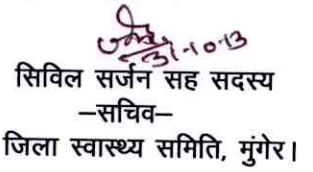 31-10-13
सिविल सर्जन सह सदस्य
–सचिव–
जिला स्वास्थ्य समिति, मुंगेर।